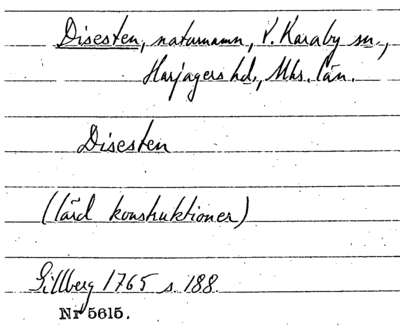 Disesten, naturnamn, V. Karaby sn.,
Harjagers hd., Mhs. län.
Disesten
(lärd konstruktioner)
Gillberg 1765 s. 188.
Nr 5615.